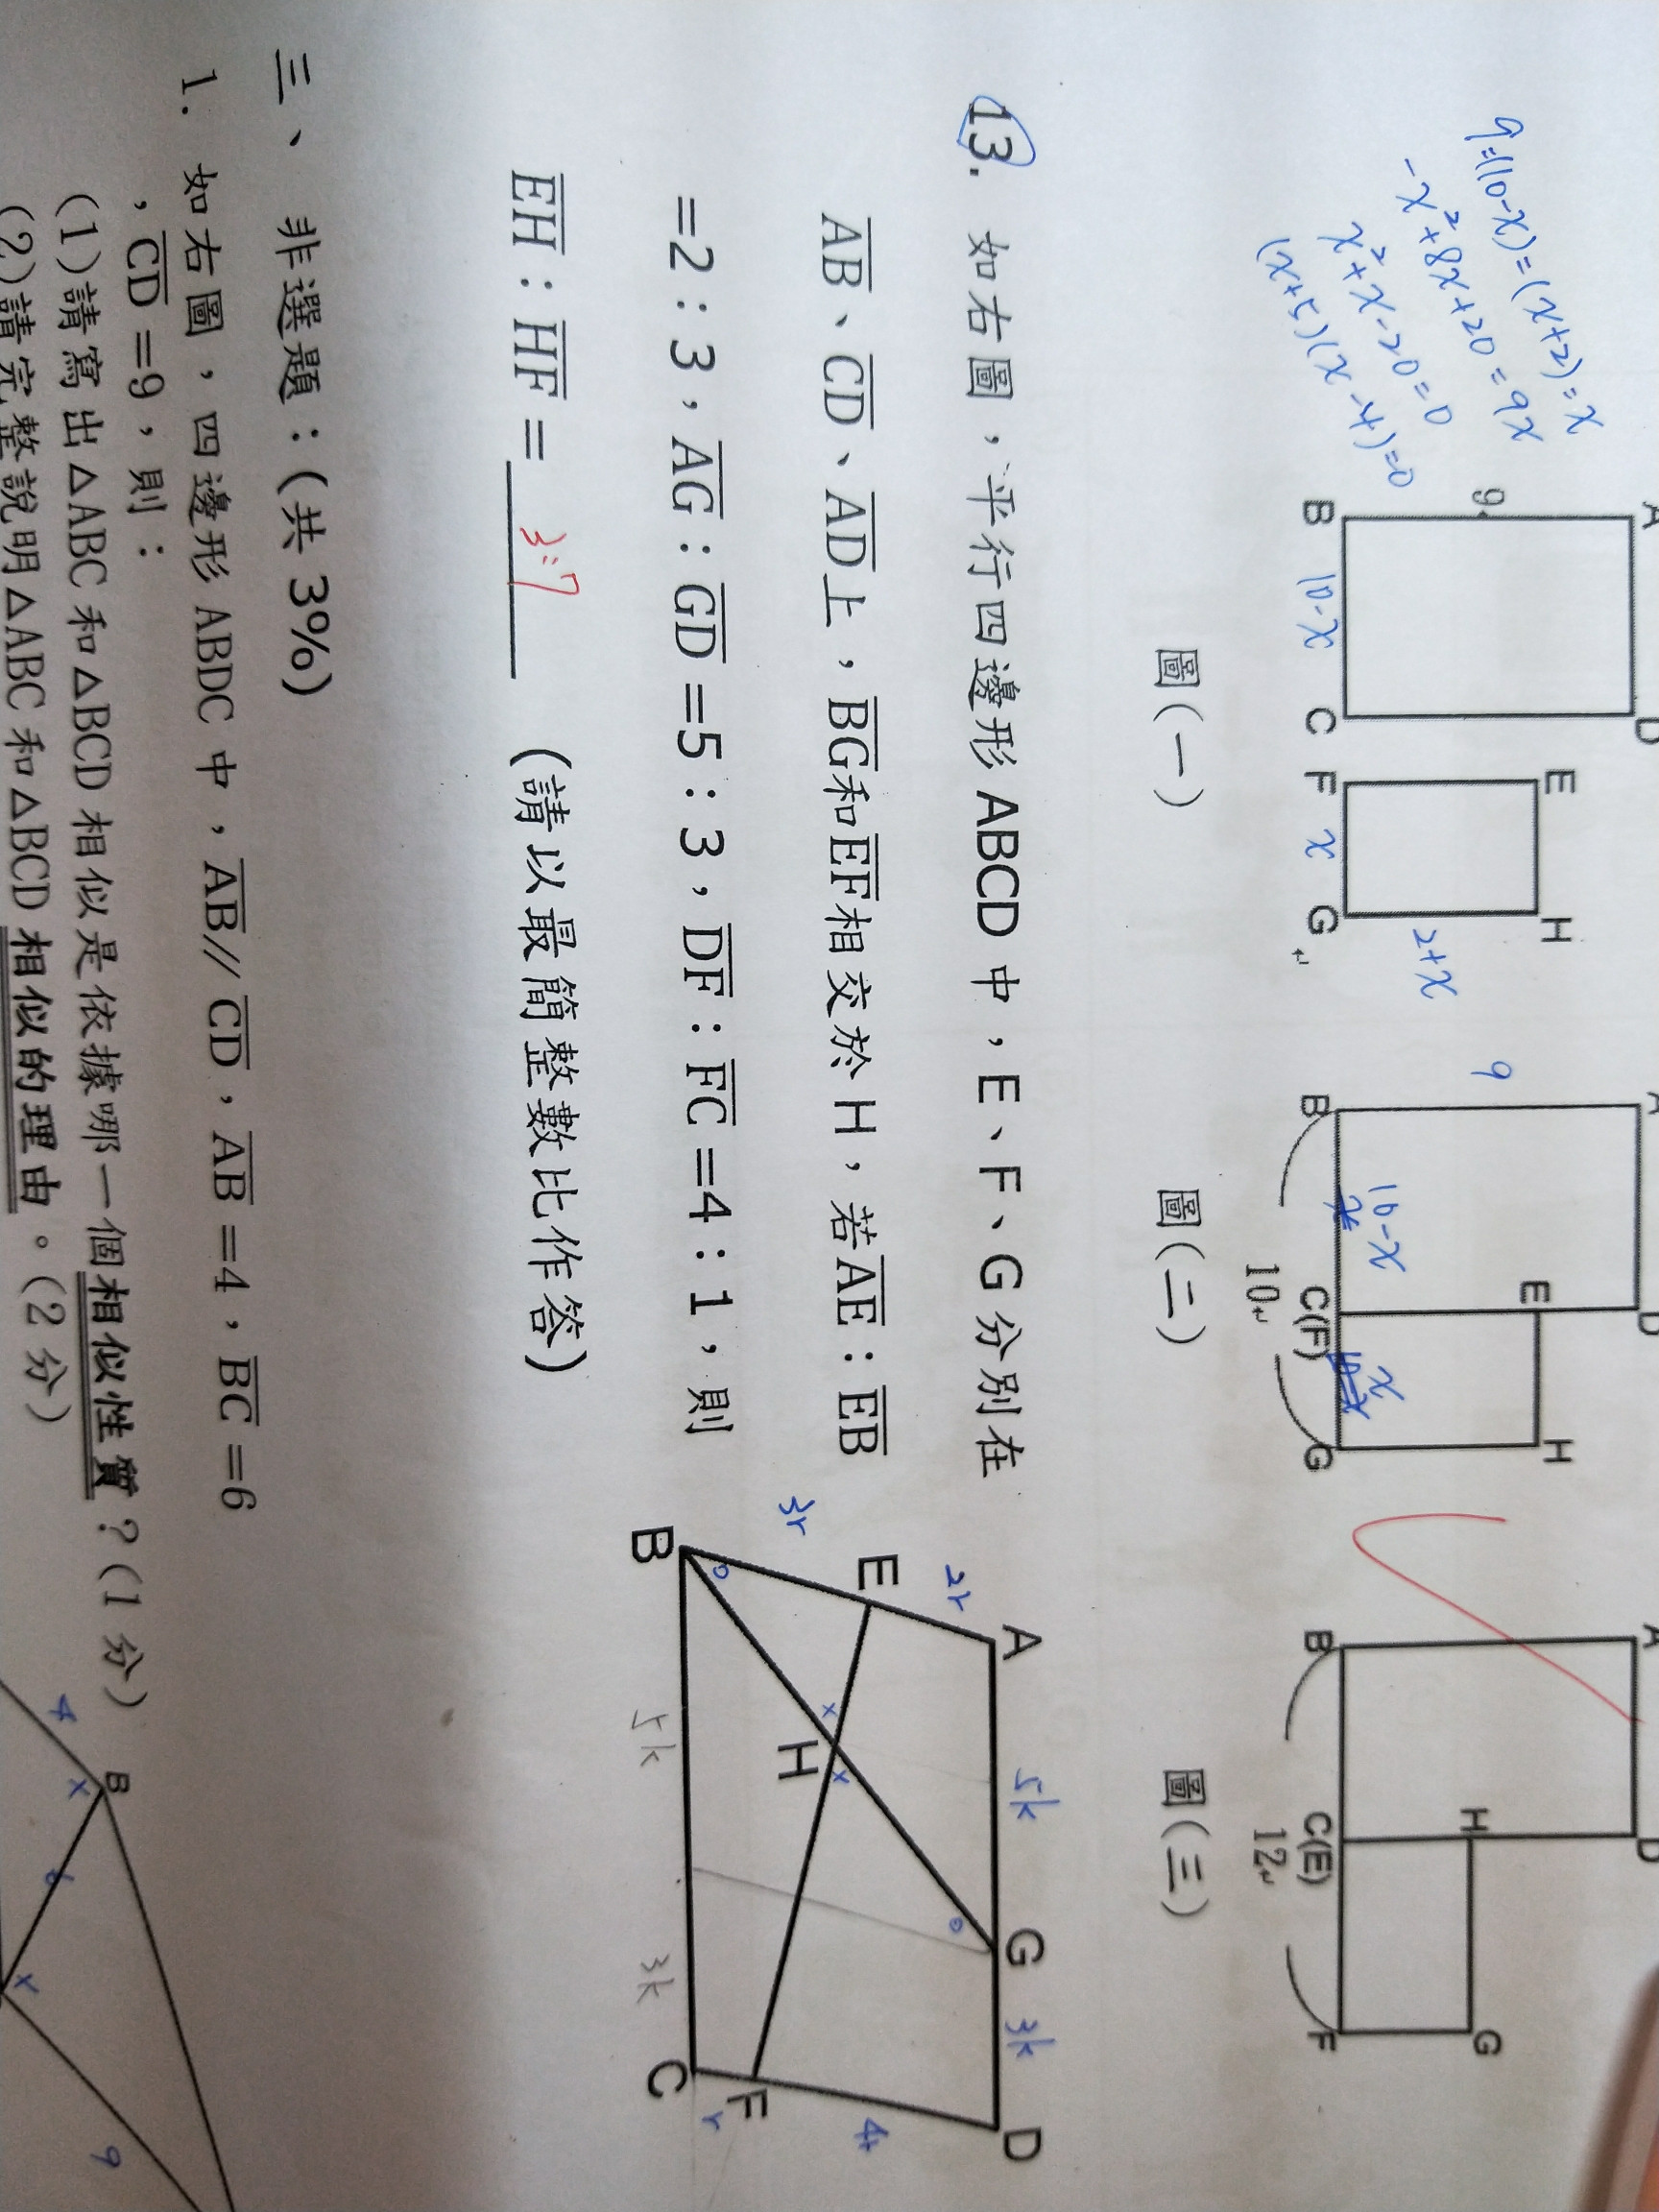 9=(10-x)=(x+2)=x
-x²+8x+20=9x
x²+x-20=0
(x+5)(x-4)=0
A D
9
E H
x+2
B 10-x C F x G
圖(一)
A D
9
E H
10-x x
B C(F) G
10
圖(二)
A D
H G
B C(E) F
12
圖(三)
13. 如右圖，平行四邊形 ABCD 中，E、F、G 分別在
AB、CD、AD上，BG和EF相交於 H，若AE：EB
=2：3，AG：GD=5：3，DF：FC=4：1，則
EH：HF= 3:7 (請以最簡整數比作答)
A 5k G 3k D
2r
E
4r
3r
H
F
r
B 5k 3k C
三、非選題：(共 3%)
1. 如右圖，四邊形 ABDC 中，AB // CD，AB=4，BC=6
，CD=9，則：
(1)請寫出△ABC 和△BCD 相似是依據哪一個相似性質？(1 分)
(2)請完整說明△ABC 和△BCD 相似的理由。(2 分)
B
4 x
6
x
9